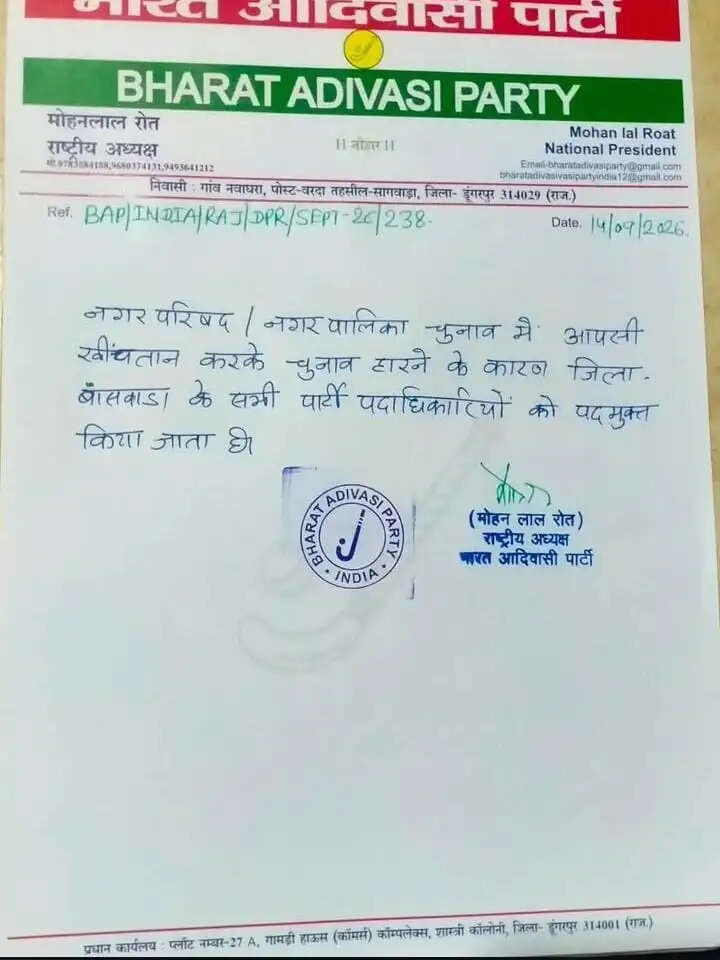 भारत आदिवासी पार्टी
BHARAT ADIVASI PARTY
मोहनलाल रोत
राष्ट्रीय अध्यक्ष
मो.9783884188,9680374131,9493641212
।। जोहार ।।
Mohan lal Roat
National President
Email-bharatadivasiparty@gmail.com
bharatadivasivasipartyindia12@gmail.com
निवासी : गांव नवाघरा, पोस्ट-वरदा तहसील-सागवाड़ा, जिला- डूंगरपुर 314029 (राज.)
Ref. BAP/INDIA/RAJ/DPR/SEPT-26/238. Date. 14/09/2026.
नगर परिषद / नगर पालिका चुनाव में आपसी
खींचतान करके चुनाव हारने के कारण जिला.
बांसवाडा के सभी पार्टी पदाधिकारियों को पदमुक्त
किया जाता है।
BHARAT ADIVASI PARTY
INDIA
(मोहन लाल रोत)
राष्ट्रीय अध्यक्ष
भारत आदिवासी पार्टी
प्रधान कार्यालय : प्लॉट नम्बर-27 A, गामड़ी हाऊस (कॉमर्स) कॉम्पलेक्स, शास्त्री कॉलोनी, जिला- डूंगरपुर 314001 (राज.)